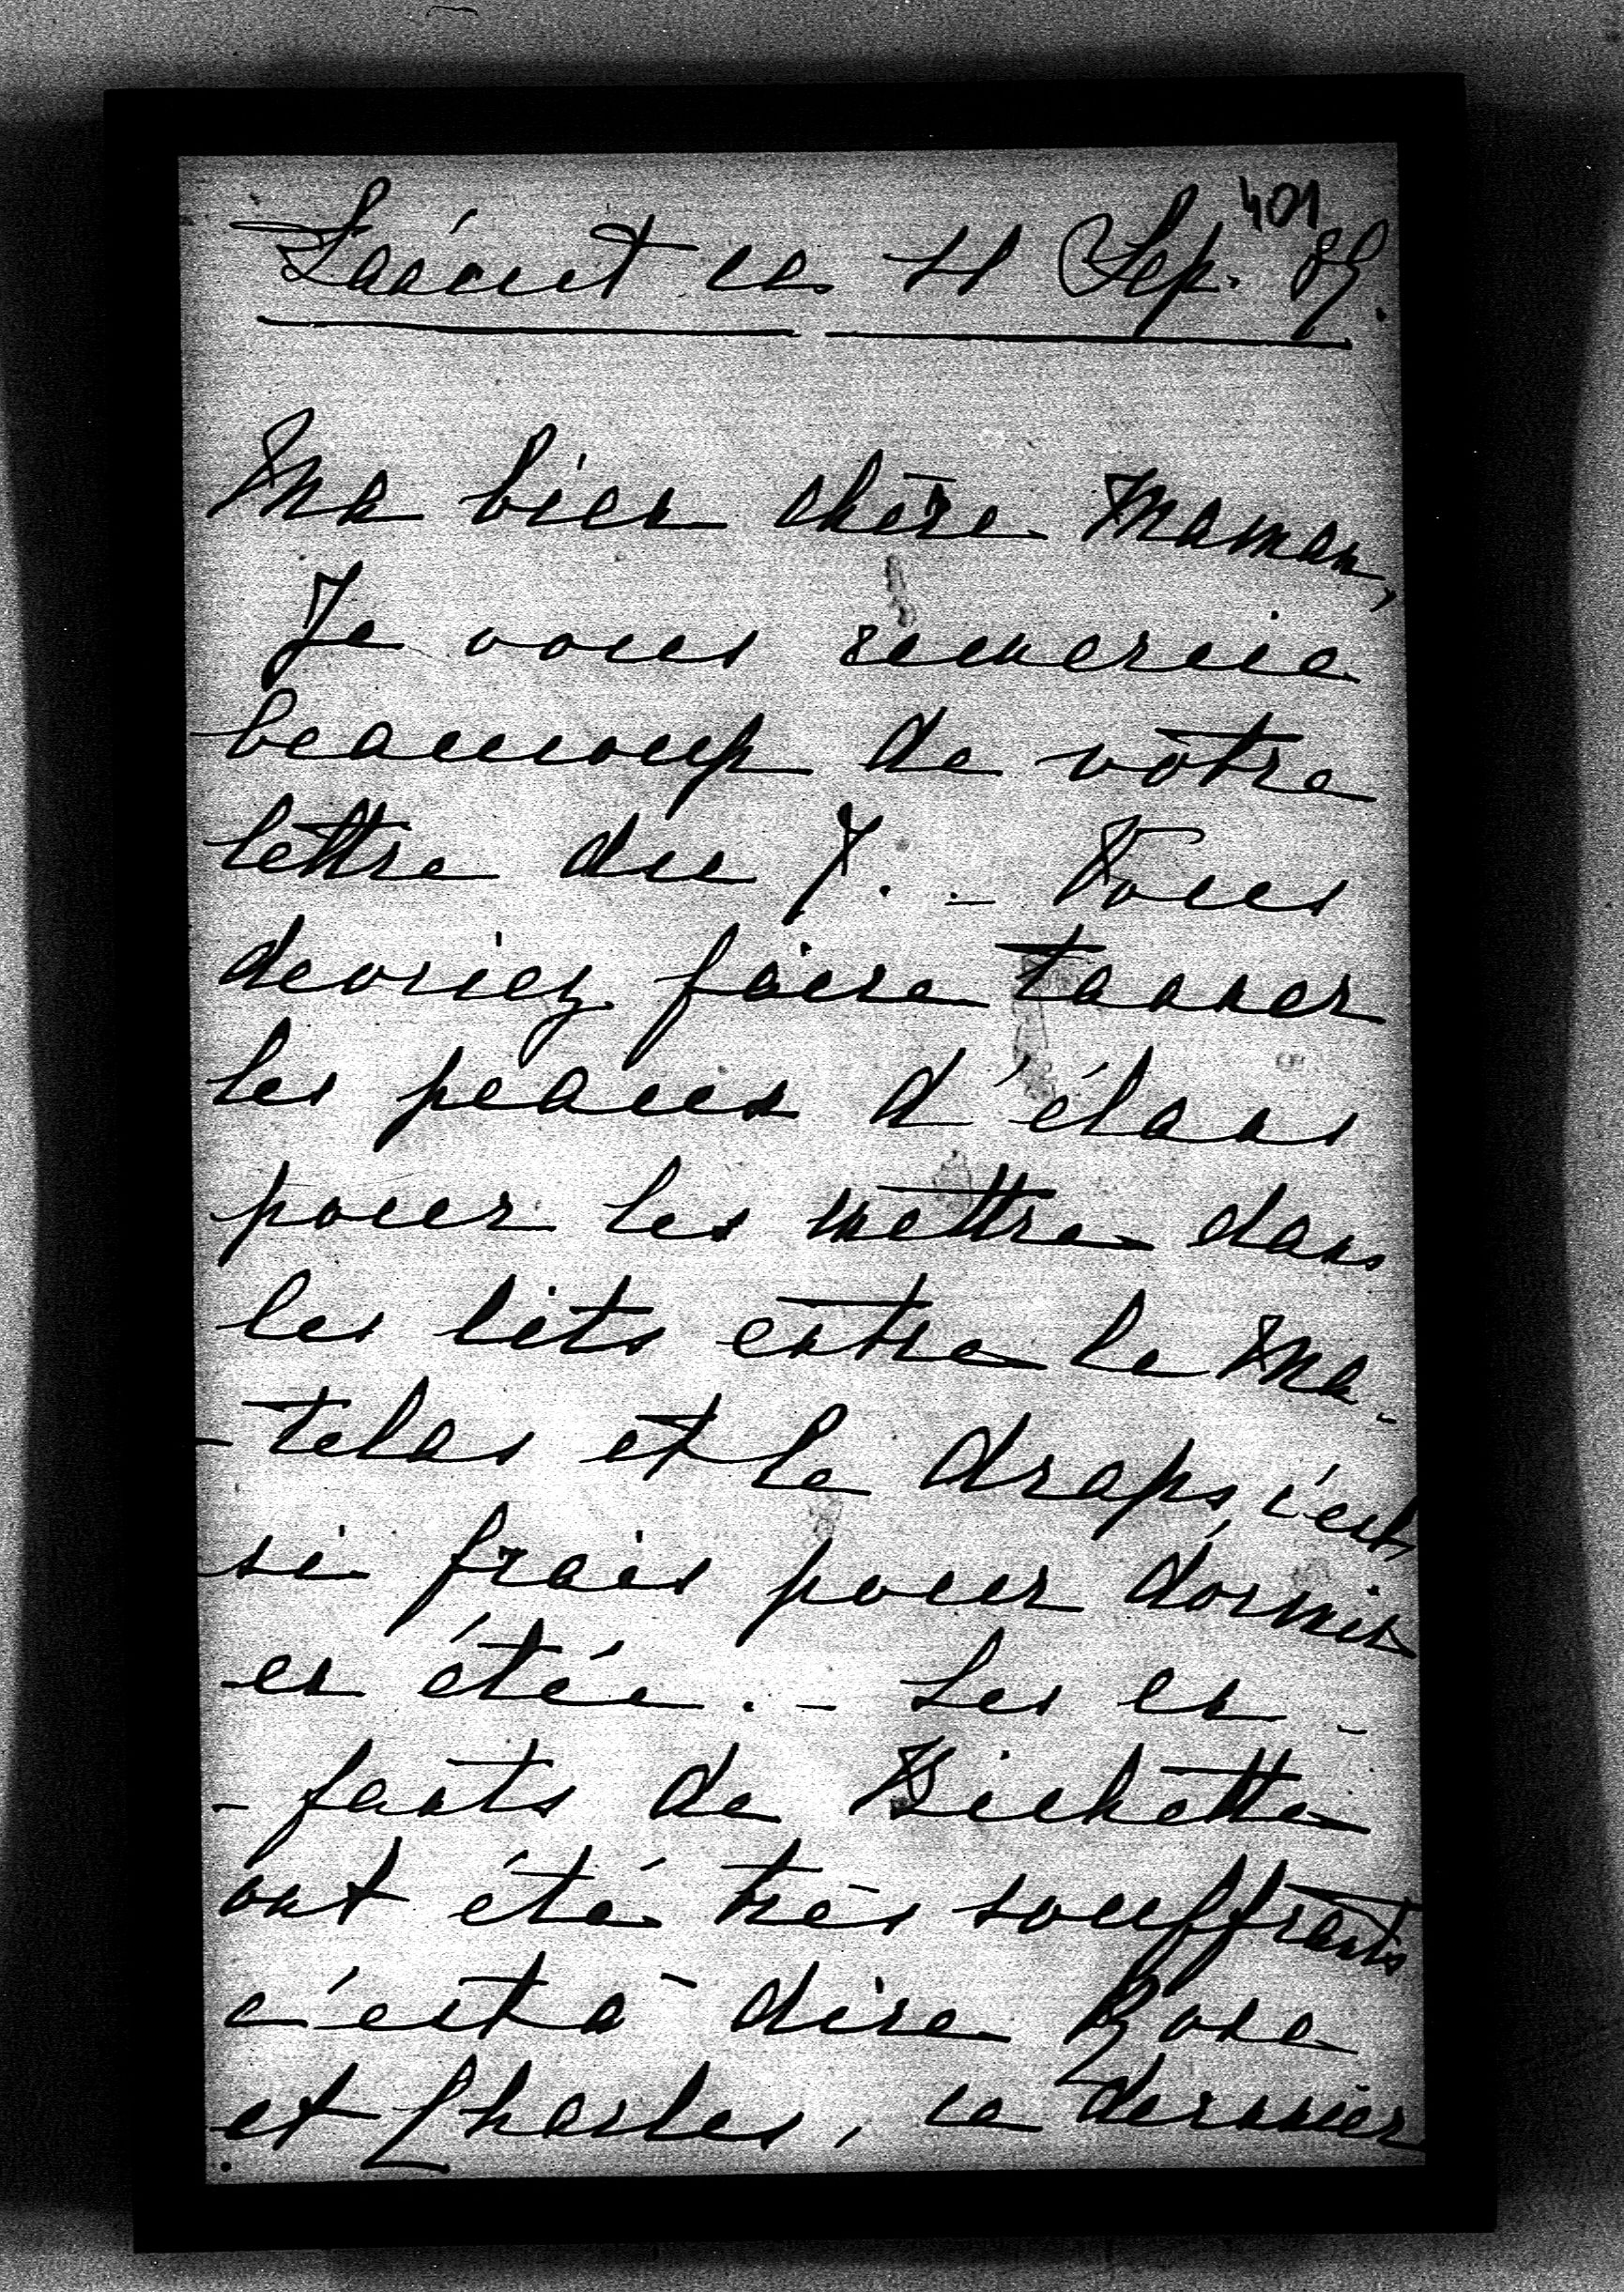 401
Łańcut ce 11 Sep. 89.
Ma bien chère Maman,
Je vous remercie
beaucoup de vôtre
lettre du 7. - Vous
devriez faire tanner
les peaux d'élans
pour les mettre dans
les lits entre le ma-
-telas et le draps, c'est
si frais pour dormir
en étée. - Les en-
-fants de Bichette
ont été très souffrants
c'est à dire Rose
et Charles, ce dernier